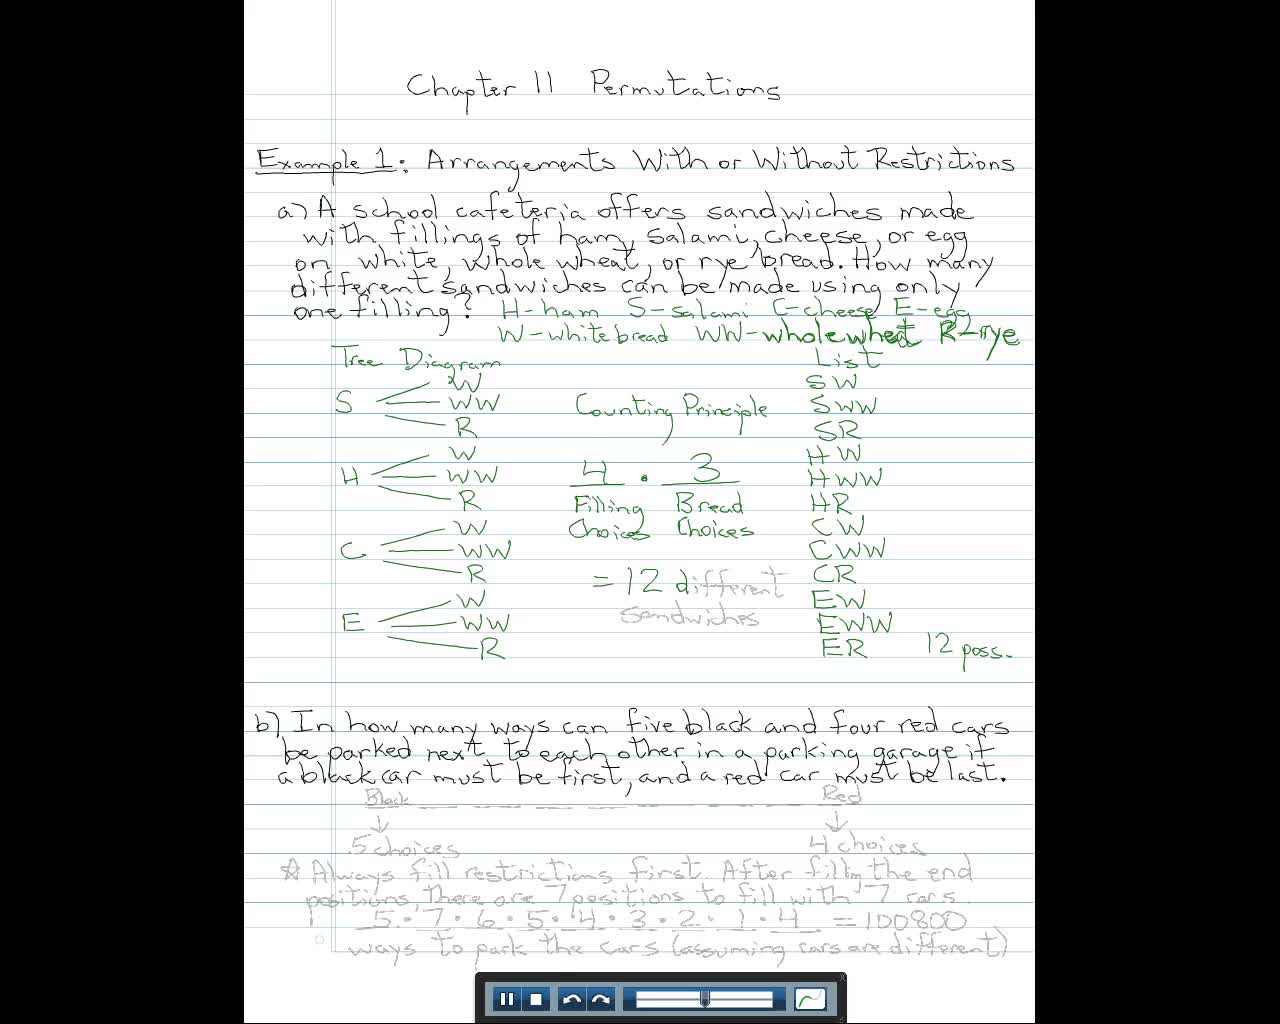 Chapter 11 Permutations
Example 1: Arrangements With or Without Restrictions
a) A school cafeteria offers sandwiches made
with fillings of ham, salami, cheese, or egg
on white, whole wheat, or rye bread. How many
different sandwiches can be made using only
one filling? H-ham S-salami C-cheese E-egg
W-white bread WW-whole wheat R-rye
Tree Diagram
W
S WW
R
W
H WW
R
W
C WW
R
W
E WW
R
Counting Principle
4 · 3
Filling Bread
Choices Choices
= 12 different
sandwiches
List
SW
SWW
SR
HW
HWW
HR
CW
CWW
CR
EW
EWW
ER 12 poss.
b) In how many ways can five black and four red cars
be parked next to each other in a parking garage if
a black car must be first, and a red car must be last.
Black Red
5 choices 4 choices
☆ Always fill restrictions first. After filling the end
positions, there are 7 positions to fill with 7 cars.
5 · 7 · 6 · 5 · 4 · 3 · 2 · 1 · 4 = 100800
ways to park the cars (assuming cars are different)